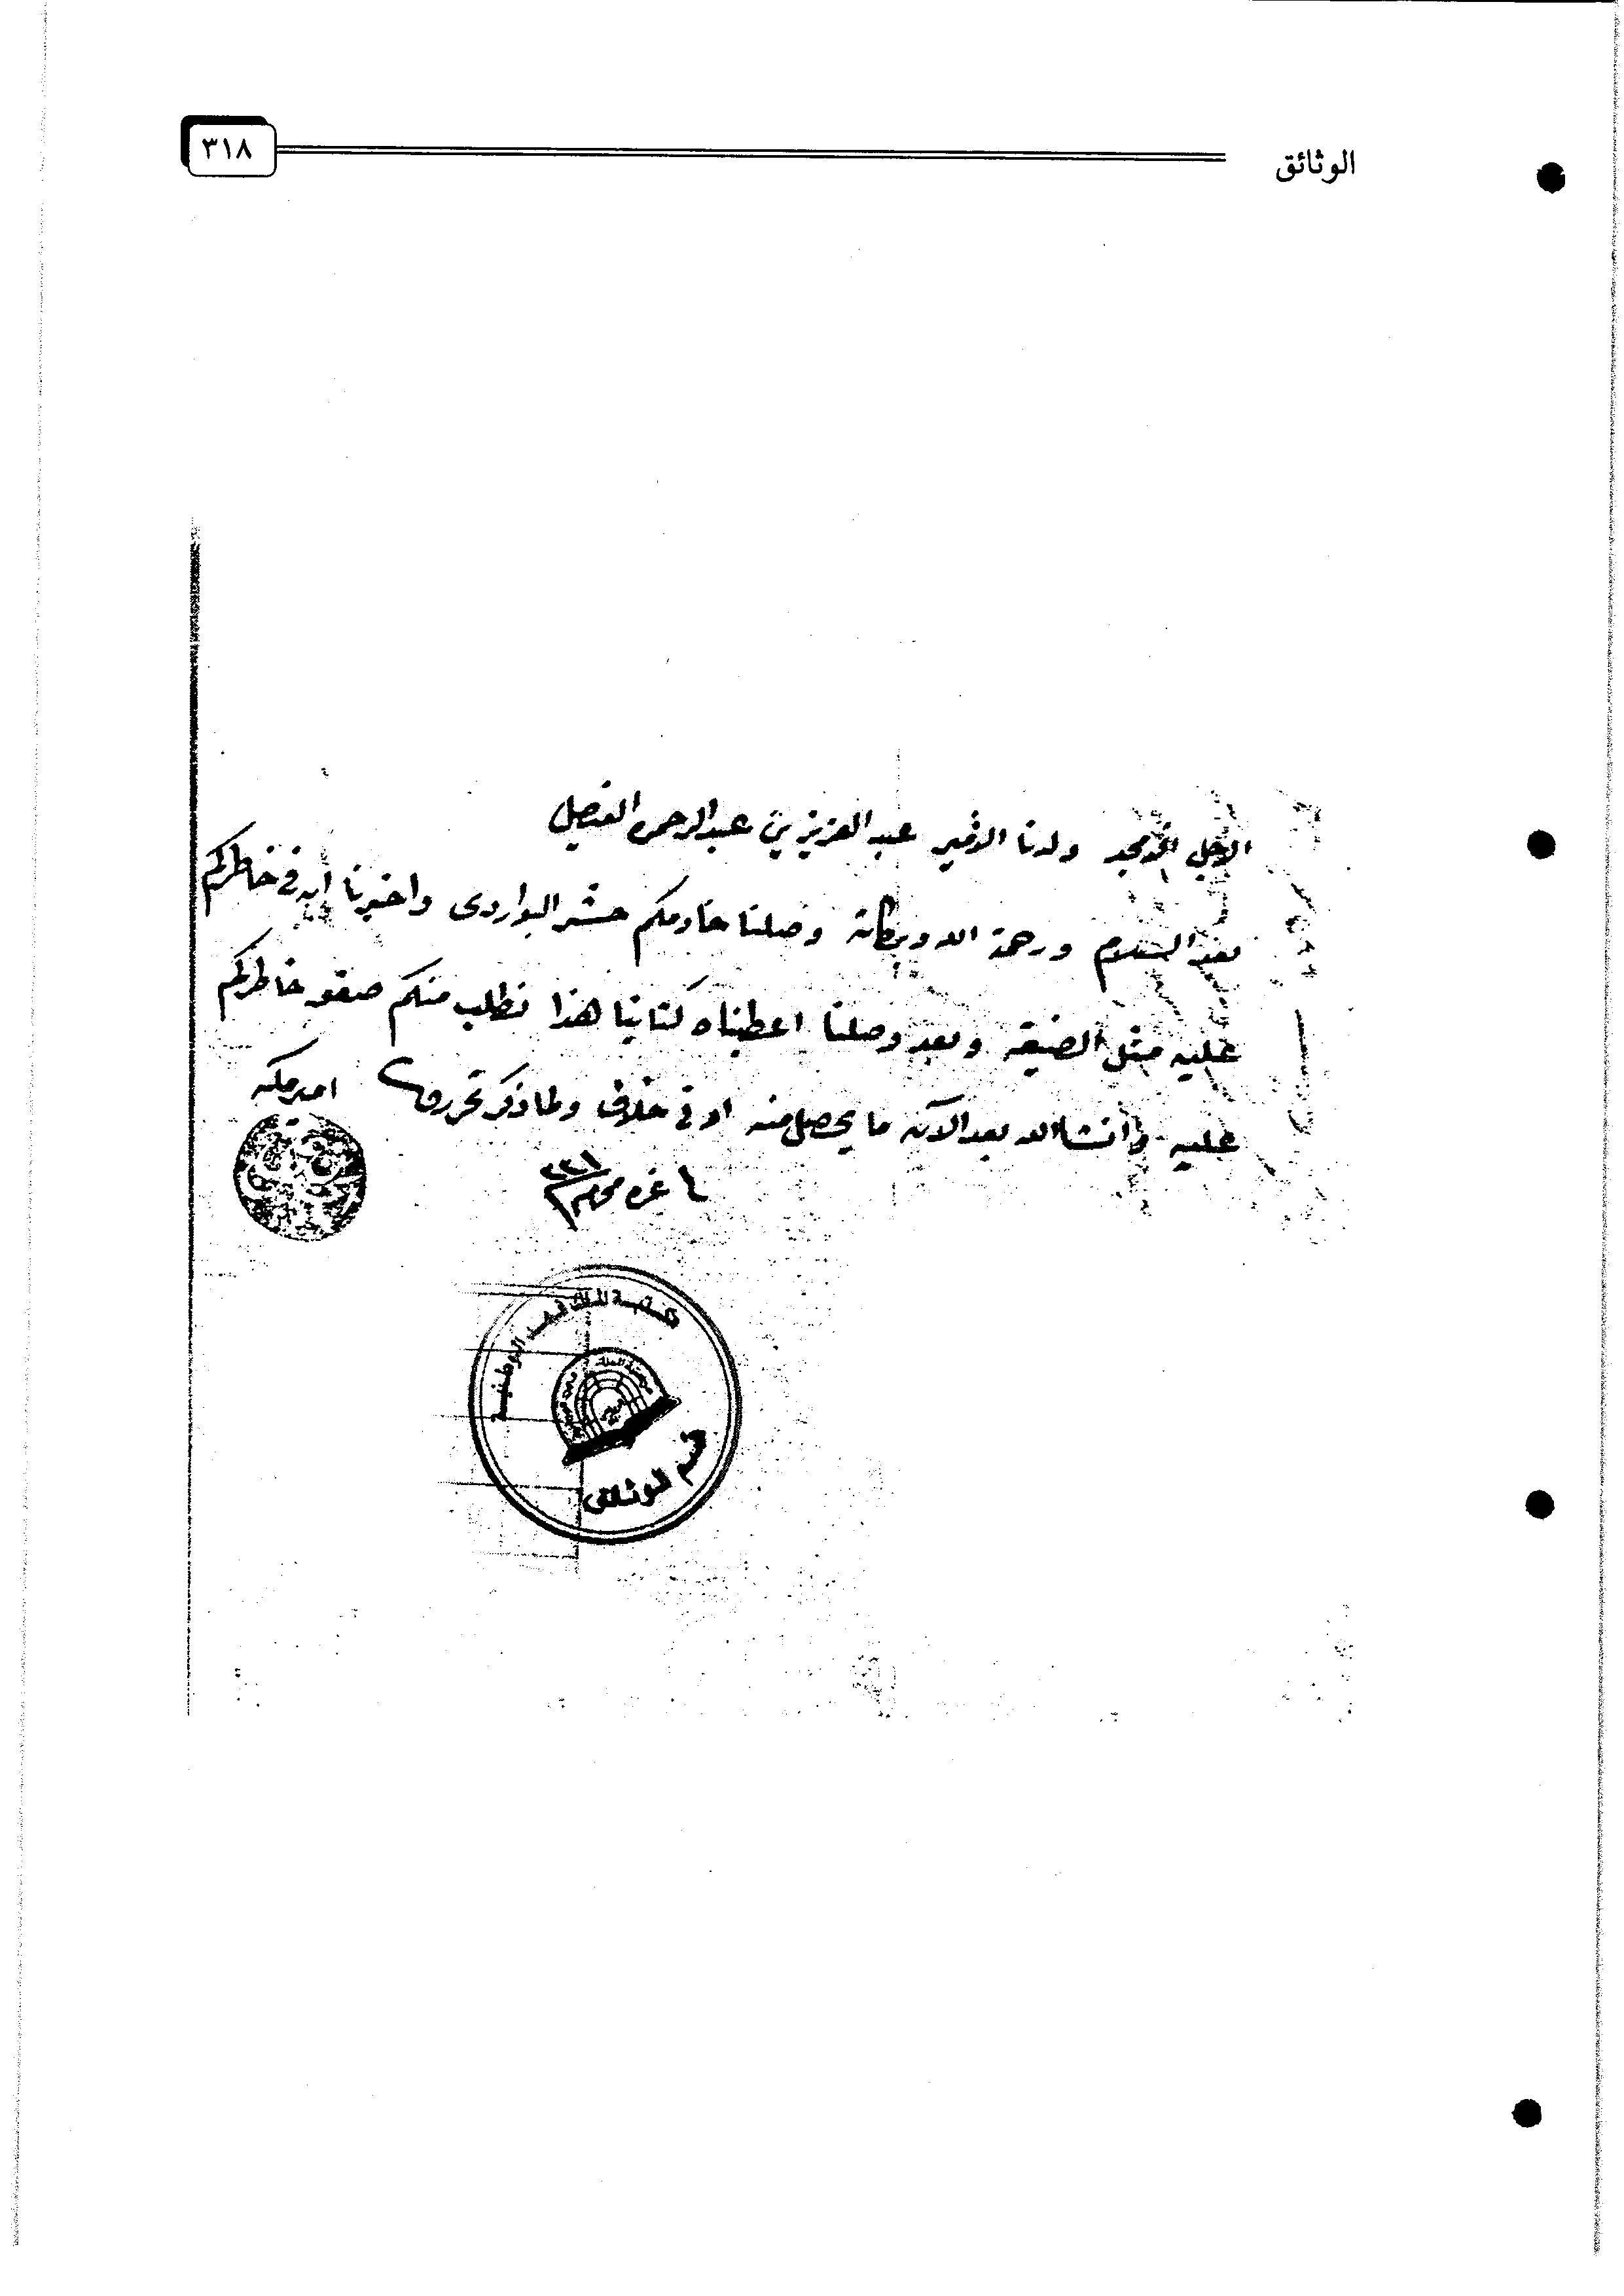 الوثائق
٣١٨
الاجل الامجد ولدنا الامير عبد العزيز بن عبد الرحمن الفيصل
بعد السلام ورحمة الله وبركاته وصلنا خادمكم حشر البواردى واخبرنا ان في خاطركم
عليه مثل الضيقه وبعد وصلنا اعطيناه كتابنا هذا نطلب منكم صفو خاطركم
عليه وانشا الله بعد الآن ما يحصل منه ادنى خلاف ولما ذكر تحرر
امير مكه
غره محرم
مكتبة الملك فهد الوطنية
قسم الوثائق